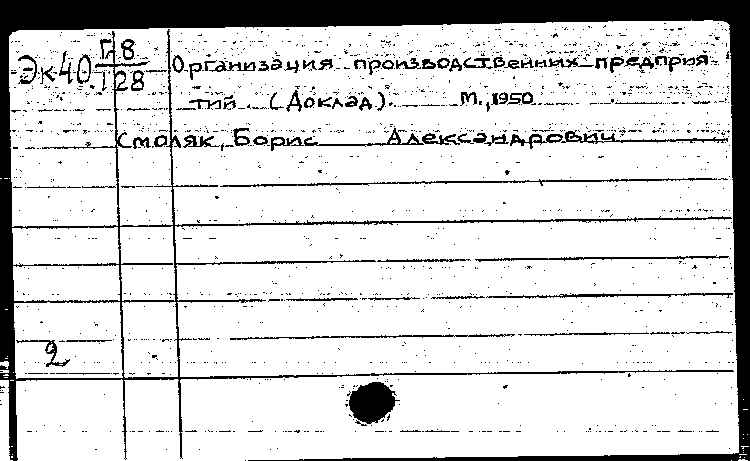 Эк40. Г-8 Организация производственних предприя-
128 тий. (Доклад). М., 1950
Смоляк, Борис Александрович
2